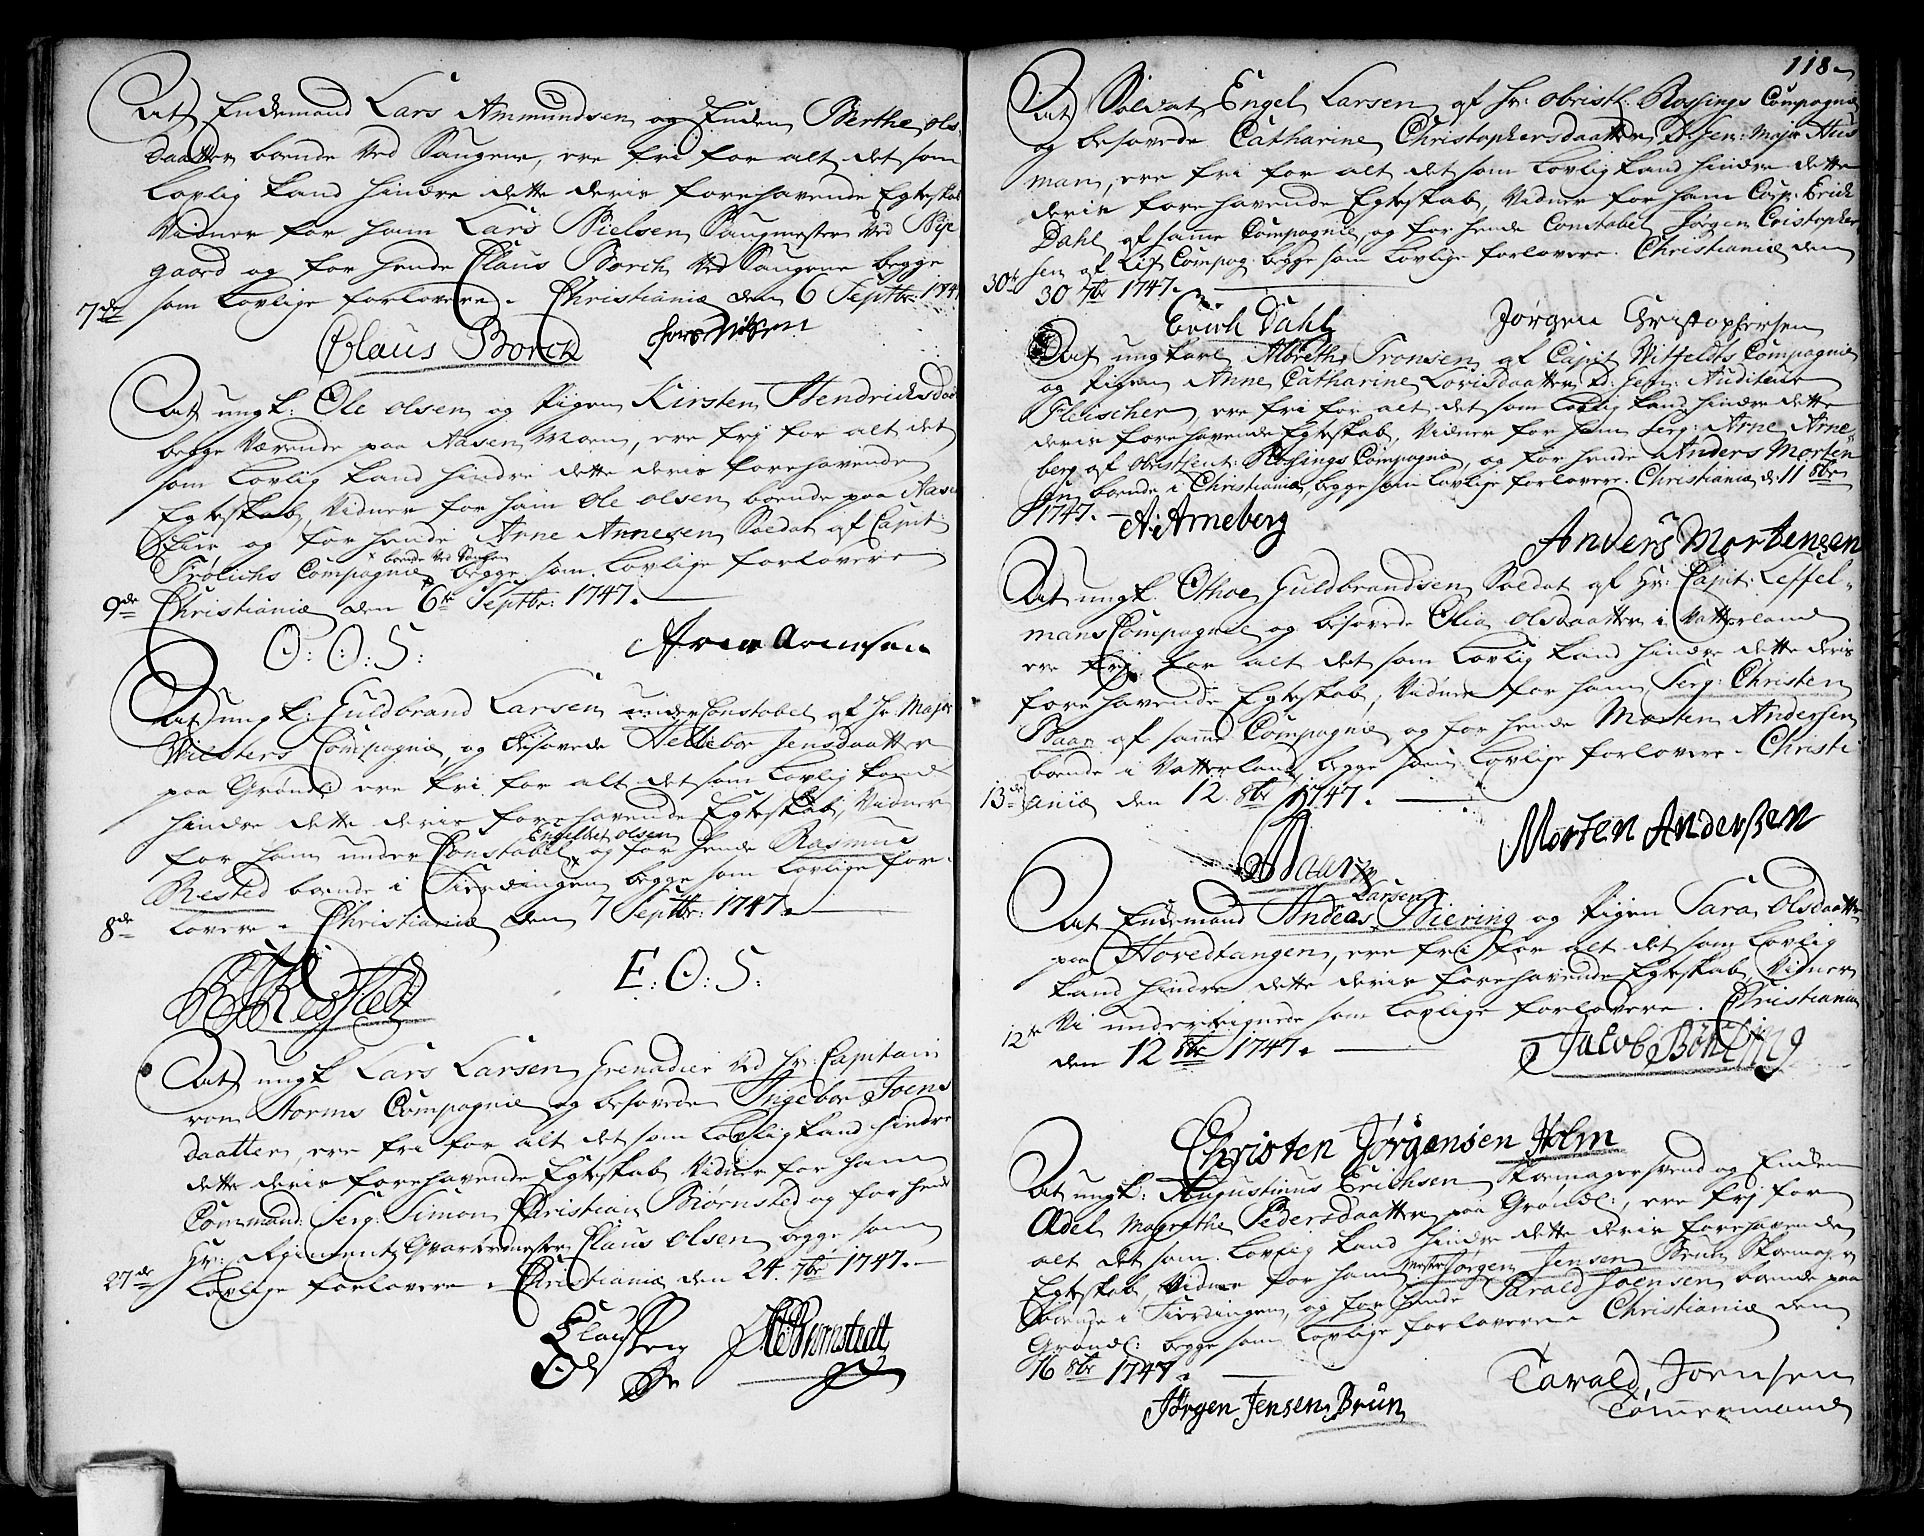 At Enckemand Lars Ammundsen og Enken Berthe Ols-
daatter boende ved Saugene, ere fri for alt det som
Lovlig kand hindre dette deris forehavende Egteskab
Vidner for ham Lars Nielsen Saugmester ved
gaard og for hende Claus Borch ved Saugene begge
7de som Lovlige forlovere. Christiania den 6 Septbr: 1747
Claus Borch Lars Nilsen
At ungk: Ole Olsen og Pigen Kirsten Hendrichsdaa
begge Værende paa Aasen Moen, ere frj for alt det
som Lovlig kand hindre dette deris forehavende
Egteskab, Vidner for ham Ole Olsen boende paa Aase
og for hende Arne Arnesen Soldat af Capit:
boende ved Saugen
Frølichs Compagnie begge som Lovlige forlovere
9de Christiania den 6te Septbr: 1747.
O: O: S: Arne Arnesen
At ungk: Guldbrand Larsen under Constabel af Hr: Major
Wilsters Compagnie, og Besovede Hellebor Jensdaatter
paa Grønd: ere fri for alt det som Lovlig kand
hindre dette deris forehavende Egteskab, Vidner
Engelbret Olsen
for ham under Constabel og for hende Rasmus
Rested boende i Fierdingen begge som Lovlige for-
8de lovere. Christiania den 7 Septbr: 1747.
E: O: S:
At ungk Lars Larsen Grenadier ved Hr: Capitain
von Storms Compagnie og besovede Ingebor Joens
daatter, ere fri for alt det som Lovlig kand hindre
dette deris forehavende Egteskab Vidner for ham
Command: Serg: Simon Christian Biørnsted og for hende
Hr: Regiments Qvarteermester Claus Olsen begge som
27de Lovlige forlovere. Christiania den 24. 7br 1747.
Biørnstedt
118
At Soldat Engel Larsen af Hr: Obristl: Rossings Compagnie
og besovede Catharine Christophersdaatter, Gen: Major Hus
man, ere fri for alt det som Lovlig kand hindre dette
deris forehavende Egteskab, Vidner for ham Corp: Erich
Dahl af samme Compagnie og for hende Constabel Jørgen Cristopher
sen af Lif Compag: begge som Lovlige forlovere. Christiania den
30te 30 7br 1747.
Erich Dahl Jørgen Christophersen
At ungkarl Albreth Tronsen af Capit Witfeldts Compagnie
og Pigen Anne Catharine Lovisdaatter, Gen: Auditeur
Fleischer, ere fri for alt det som Lovlig kand hindre dette
deris forehavende Egteskab, Vidner for ham Serg: Arne Arne-
berg af Obristlieut: Rossings Compagnie, og for hende Anders Morten
sen boende i Christiania, begge som Lovlige forlovere. Christiania d: 11 8br
1747. A: Arneberg Anders Mortensen
At ungk: Othoe Guldbrandsen Soldat af Hr: Capit: Leffel-
mans Compagnie og besovede Elia Olsdaatter i Vatterland
ere frj for alt det som Lovlig kand hindre dette deris
forehavende Egteskab, Vidner for ham Serg: Christen
Saar af samme Compagnie og for hende Morten Andersen
boende i Vatterland begge som Lovlige forlovere. Christi
13de ania den 12. 8br 1747.
Morten Anderßen
Larsen
At Enckemand Andeas Biering og Pigen Sara Olsdaatter
paa Hovedtangen, ere fri for alt det som Lovlig
kand hindre dette deris forehavende Egteskab, Vidner
Vi undertegnede som Lovlige forlovere. Christiania
12te den 12 8br 1747.
Jacob Bøhling
Christen Jørgensen Holm
At ungk: Augustinus Erichsen Skomagersvend og Enken
Adel Magrethe Pedersdaatter paa Grønd:, ere frj for
alt det som Lovlig kand hindre dette deris forehavende
Egteskab, Vidner for ham Mester Jørgen Jensen Brun Skomager
boende i Fierdingen, og for hende Tarald Joensen boende paa
Grønd: begge som Lovlige forlovere. Christiania den
16 8br 1747.
Jørgen Jensen Brun Tarald, Joensen
Tømmermand